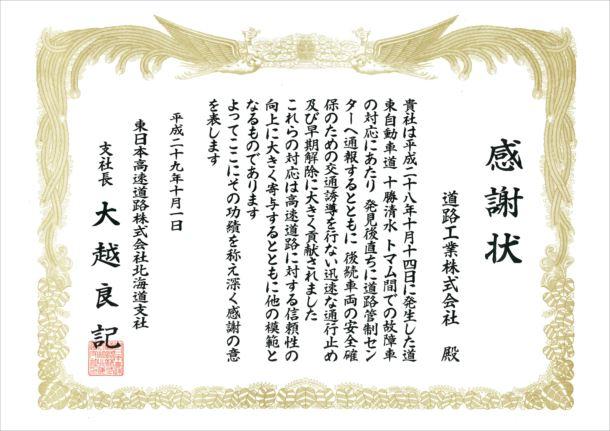 感謝状
道路工業株式会社 殿
貴社は平成二十八年十月十四日に発生した道
東自動車道 十勝清水 トマム間での故障車
の対応にあたり 発見後直ちに道路管制セン
ターへ通報するとともに 後続車両の安全確
保のための交通誘導を行ない迅速な通行止め
及び早期解除に大きく貢献されました
これらの対応は高速道路に対する信頼性の
向上に大きく寄与するとともに他の模範と
なるものであります
よってここにその功績を称え深く感謝の意
を表します
平成二十九年十月一日
東日本高速道路株式会社北海道支社
支社長 大越良記